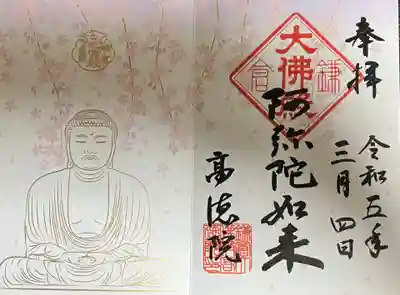 奉拝
令和五年
三月四日
鎌倉
大佛殿
阿弥陀如来
高徳院